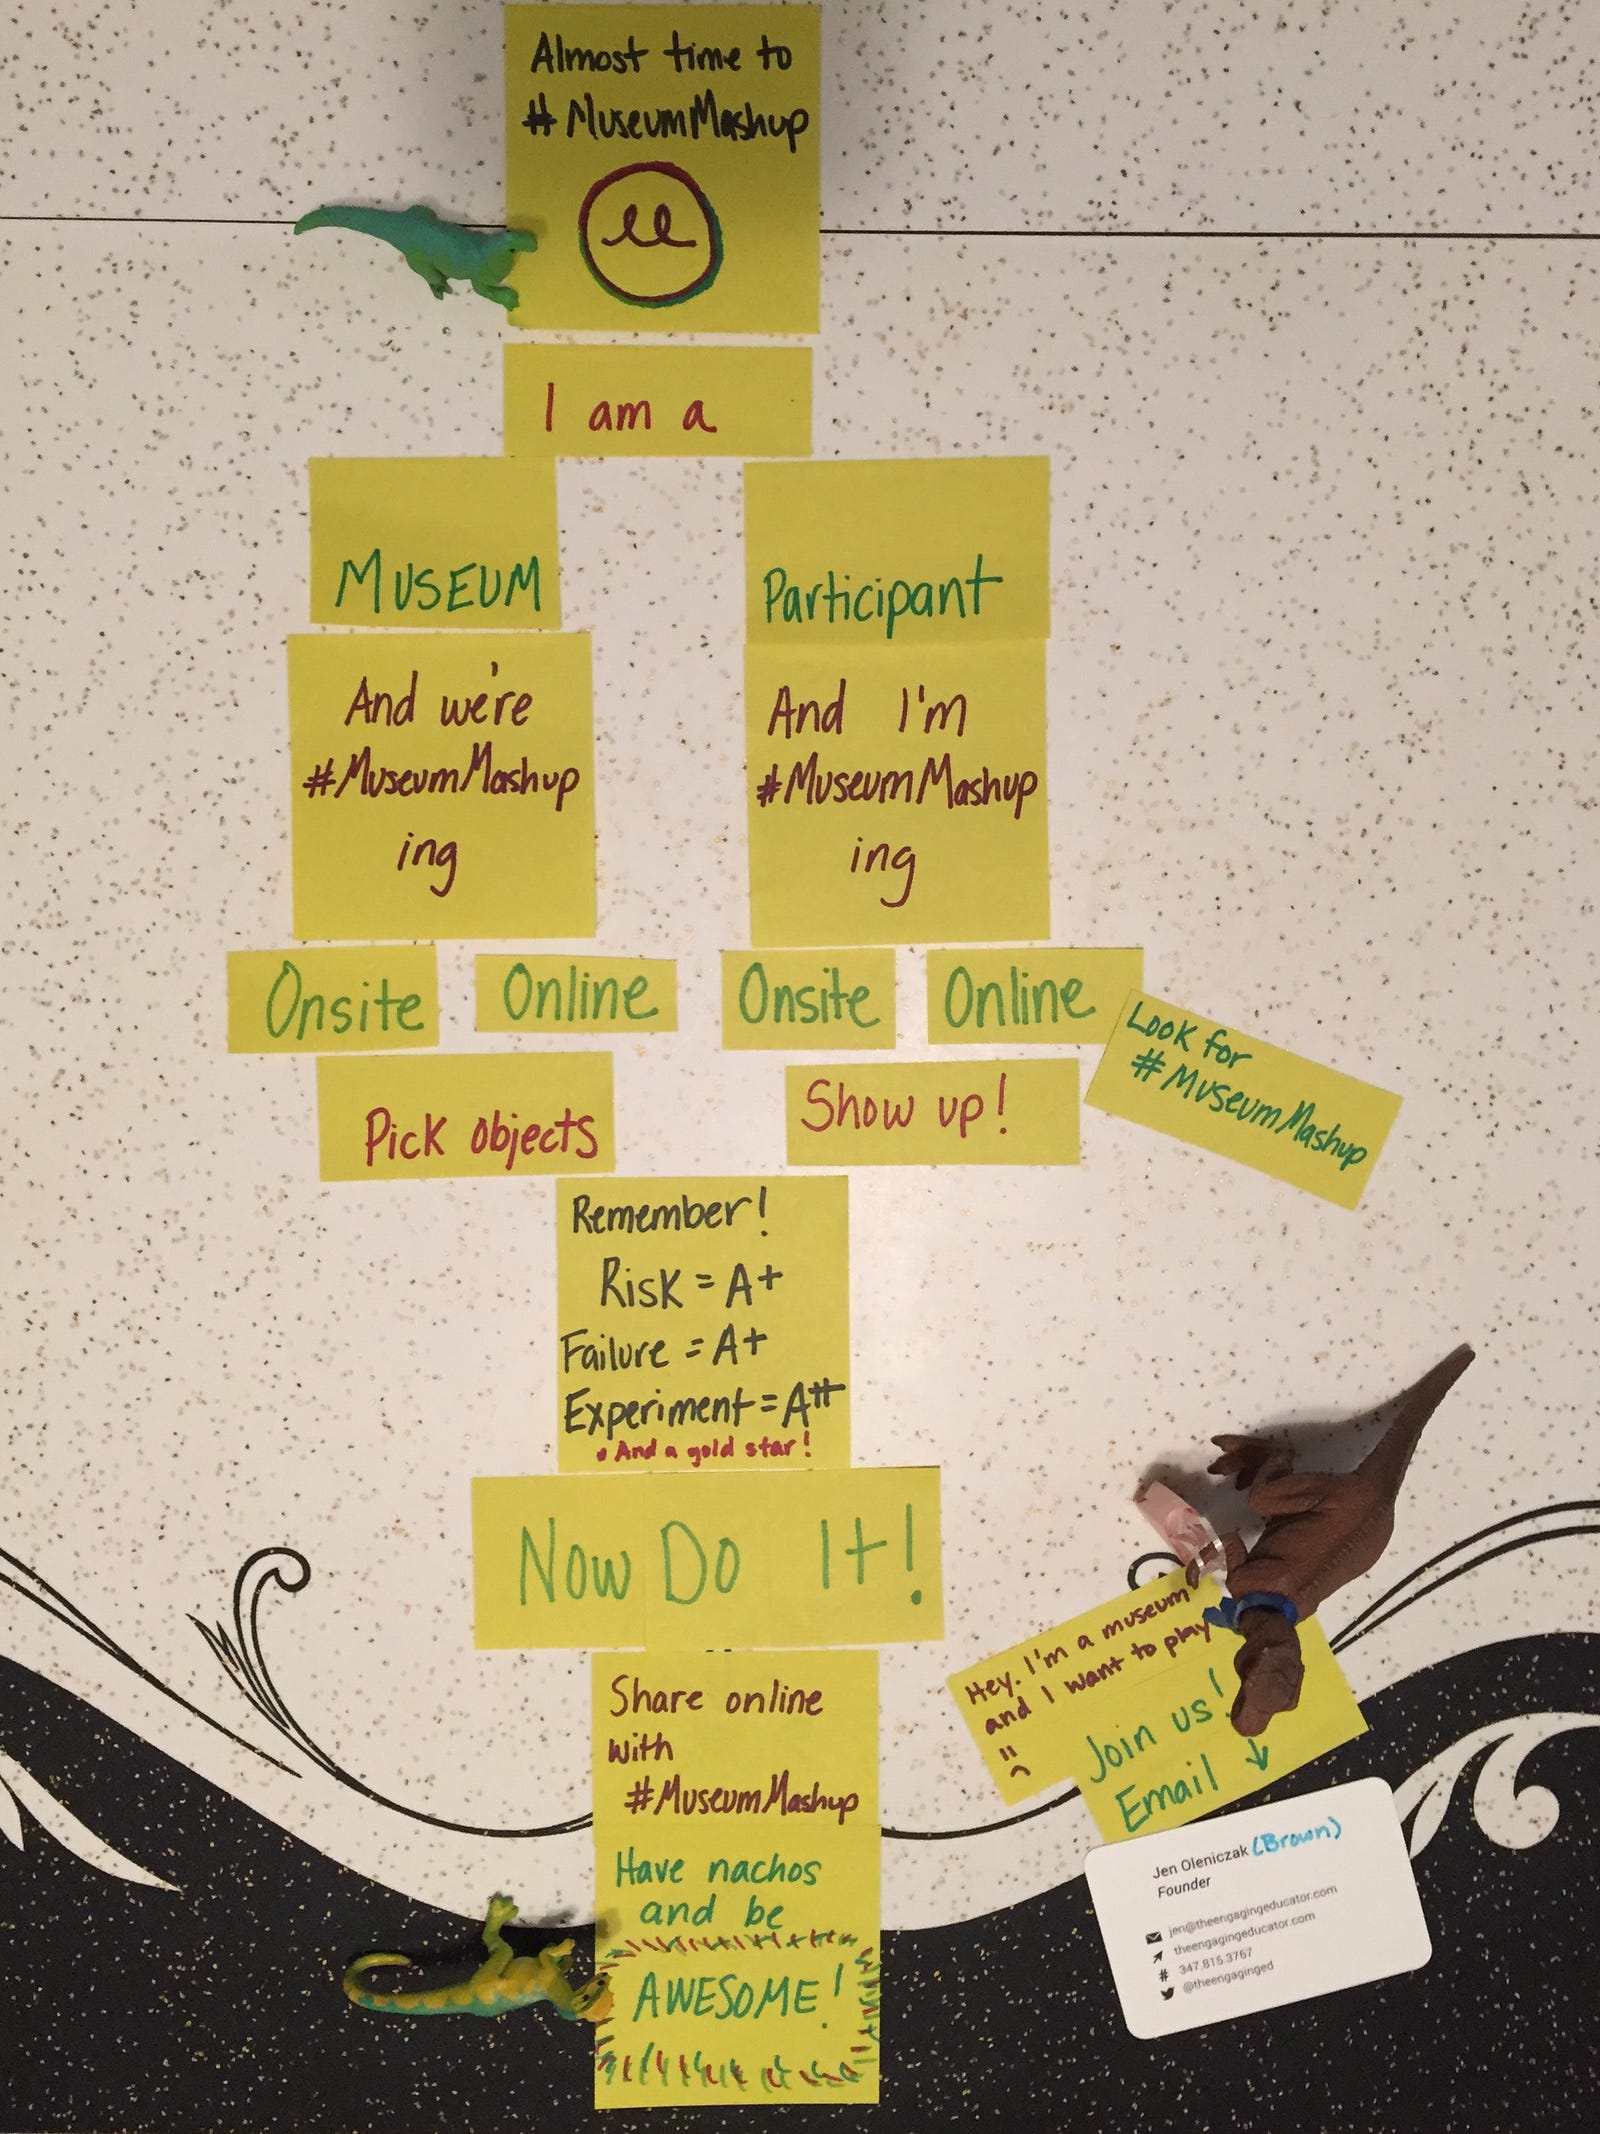 Almost time to
#MuseumMashup
I am a
MUSEUM
Participant
And we're
#MuseumMashup
ing
And I'm
#MuseumMashup
ing
Onsite
Online
Onsite
Online
Look for
#MuseumMashup
Pick objects
Show up!
Remember!
Risk = A+
Failure = A+
Experiment = A++
And a gold star!
Now Do It!
Share online
with
#MuseumMashup
Have nachos
and be
AWESOME!
Hey. I'm a museum
and I want to play
Join us!
Email ↓
Jen Oleniczak (Brown)
Founder
jen@theengagingeducator.com
theengagingeducator.com
# 347.815.3767
@theengaginged